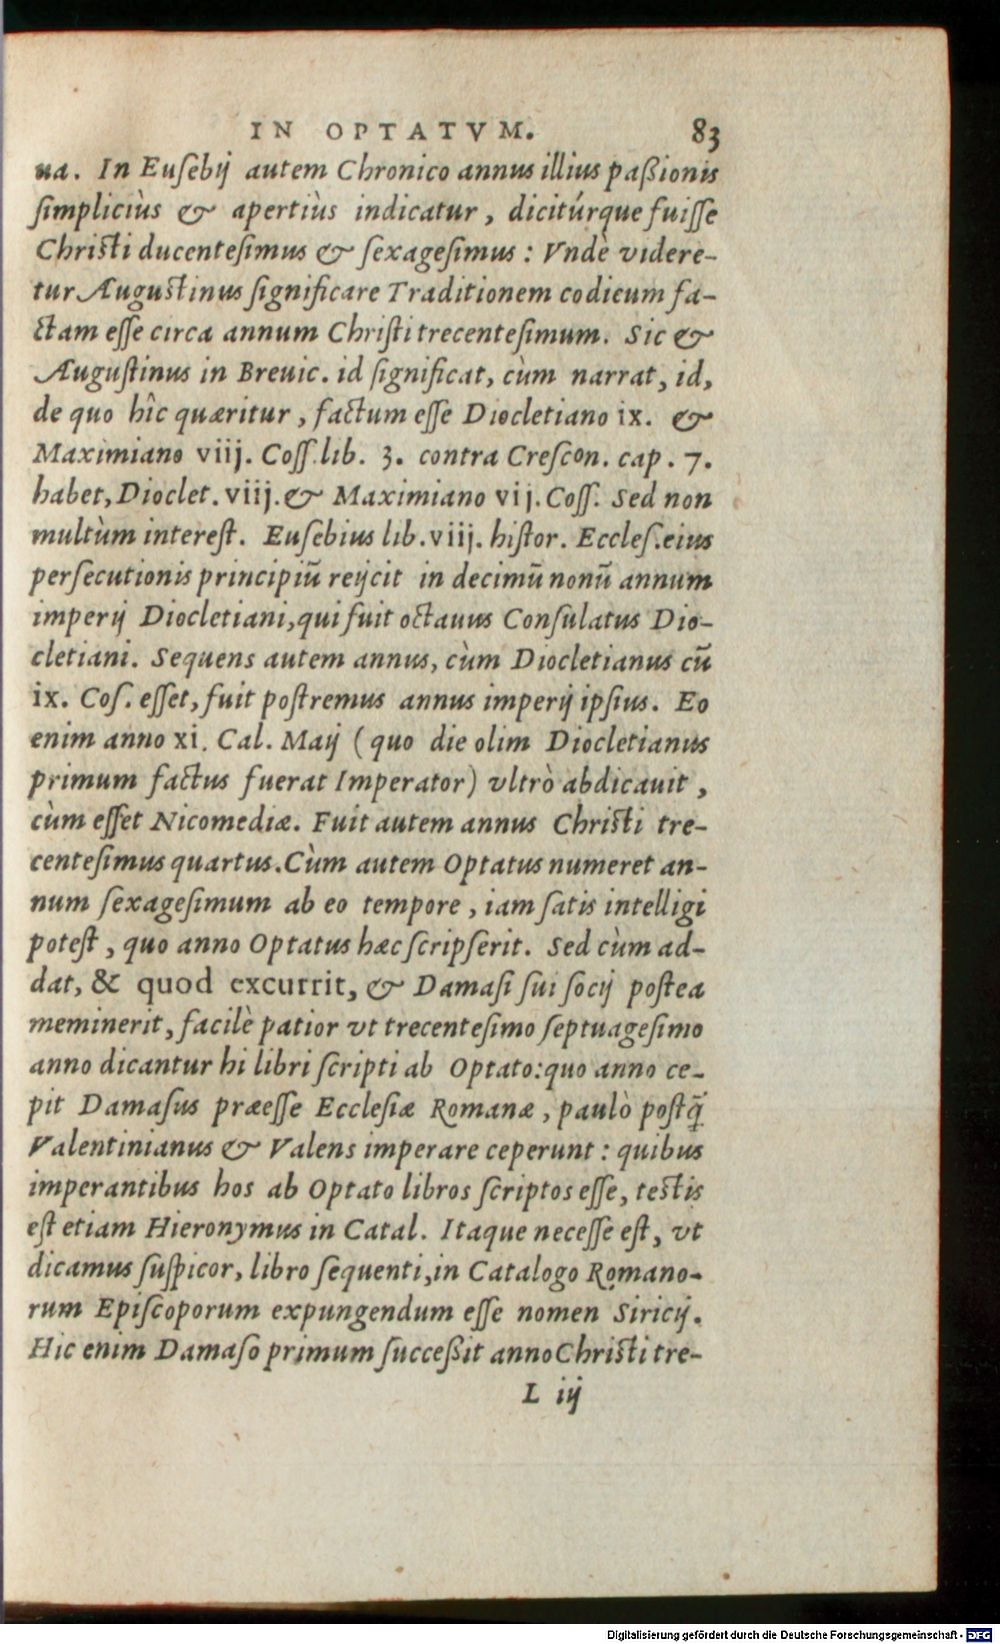 IN OPTATVM. 83
ua. In Euſebij autem Chronico annus illius paßionis
ſimpliciùs & apertiùs indicatur, dicitúrque fuiſſe
Chriſti ducenteſimus & ſexageſimus: Vnde videre-
tur Auguſtinus ſignificare Traditionem codicum fa-
ctam eſſe circa annum Chriſti trecenteſimum. Sic &
Auguſtinus in Breuic. id ſignificat, cùm narrat, id,
de quo hîc quæritur, factum eſſe Diocletiano ix. &
Maximiano viij. Coſſ. lib. 3. contra Creſcon. cap. 7.
habet, Dioclet. viij. & Maximiano vij. Coſſ. Sed non
multùm intereſt. Euſebius lib. viij. hiſtor. Eccleſ. eius
perſecutionis principiũ reijcit in decimũ nonũ annum
imperij Diocletiani, qui fuit octauus Conſulatus Dio-
cletiani. Sequens autem annus, cùm Diocletianus cũ
ix. Coſ. eſſet, fuit poſtremus annus imperij ipſius. Eo
enim anno xi. Cal. Maij (quo die olim Diocletianus
primum factus fuerat Imperator) vltrò abdicauit,
cùm eſſet Nicomediæ. Fuit autem annus Chriſti tre-
centeſimus quartus. Cùm autem Optatus numeret an-
num ſexageſimum ab eo tempore, iam ſatis intelligi
poteſt, quo anno Optatus hæc ſcripſerit. Sed cùm ad-
dat, & quod excurrit, & Damaſi ſui ſocij poſtea
meminerit, facilè patior vt trecenteſimo ſeptuageſimo
anno dicantur hi libri ſcripti ab Optato: quo anno ce-
pit Damaſus præeſſe Eccleſiæ Romanæ, paulò poſtq̃
Valentinianus & Valens imperare ceperunt: quibus
imperantibus hos ab Optato libros ſcriptos eſſe, teſtis
eſt etiam Hieronymus in Catal. Itaque neceſſe eſt, vt
dicamus ſuſpicor, libro ſequenti, in Catalogo Romano-
rum Epiſcoporum expungendum eſſe nomen Siricij.
Hic enim Damaſo primum ſucceßit anno Chriſti tre-
L iij
Digitalisierung gefördert durch die Deutsche Forschungsgemeinschaft - DFG